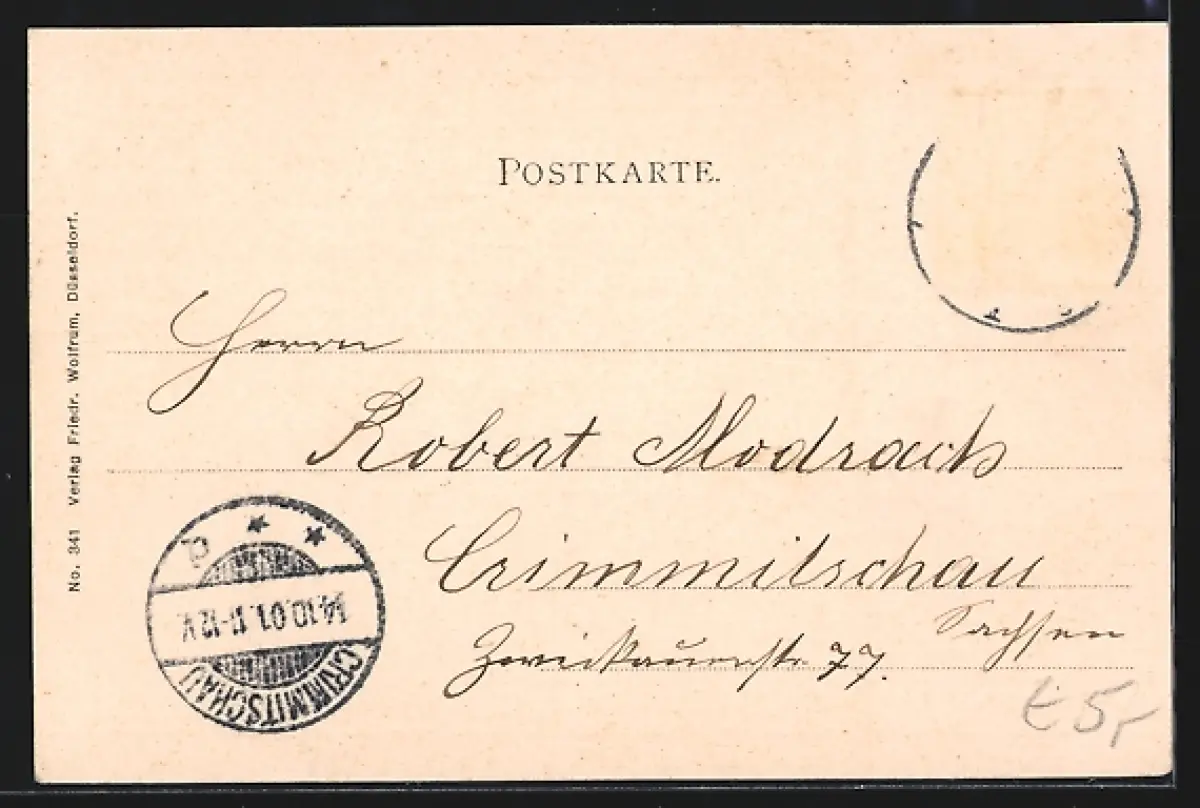 POSTKARTE.
No. 341 Verlag Friedr. Wolfrum, Düsseldorf.
Herrn
Robert Modrach
Crimmitschau
Sachsen
Zwickauerstr. 77.
14.10.01. 11-12 V.
CRIMMITSCHAU
5,-